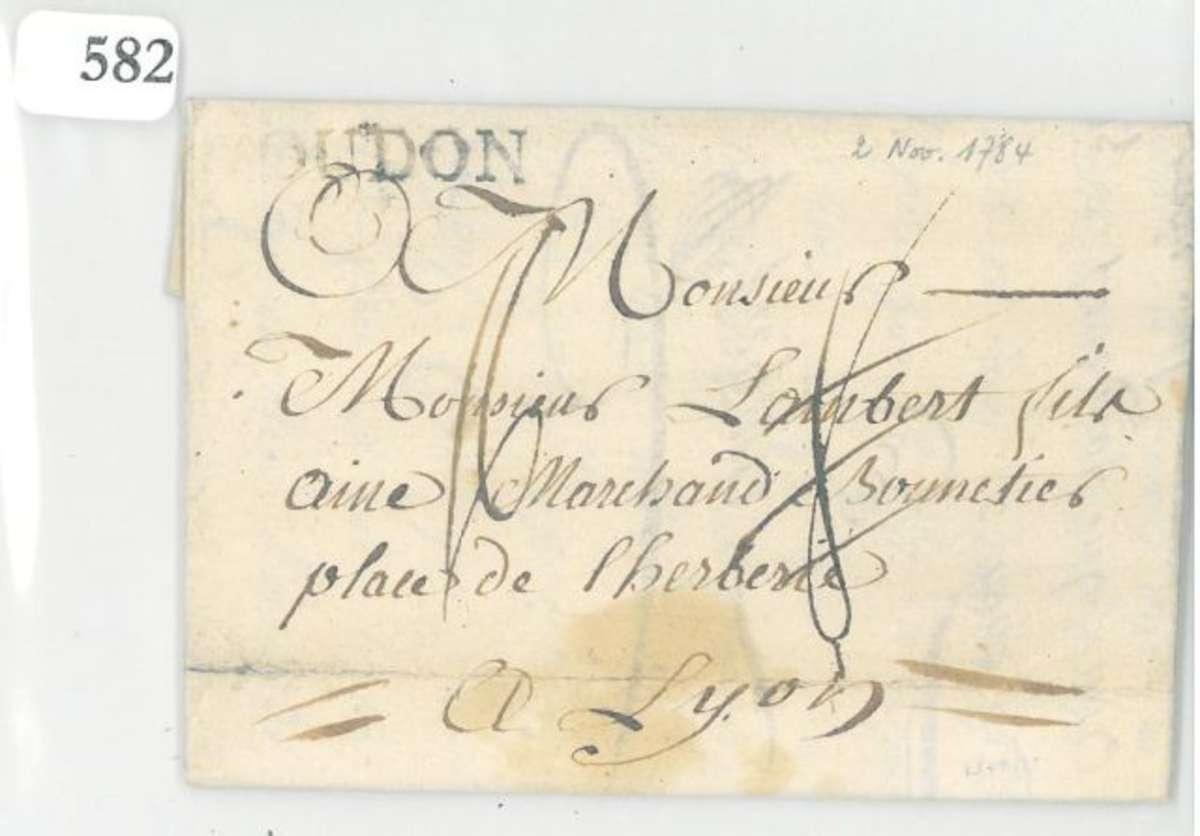 582
OUDON
2 Nov. 1784
Monsieur
Monsieur Lambert fils
aine Marchand Bonnetier
place de lherberie
A Lyon